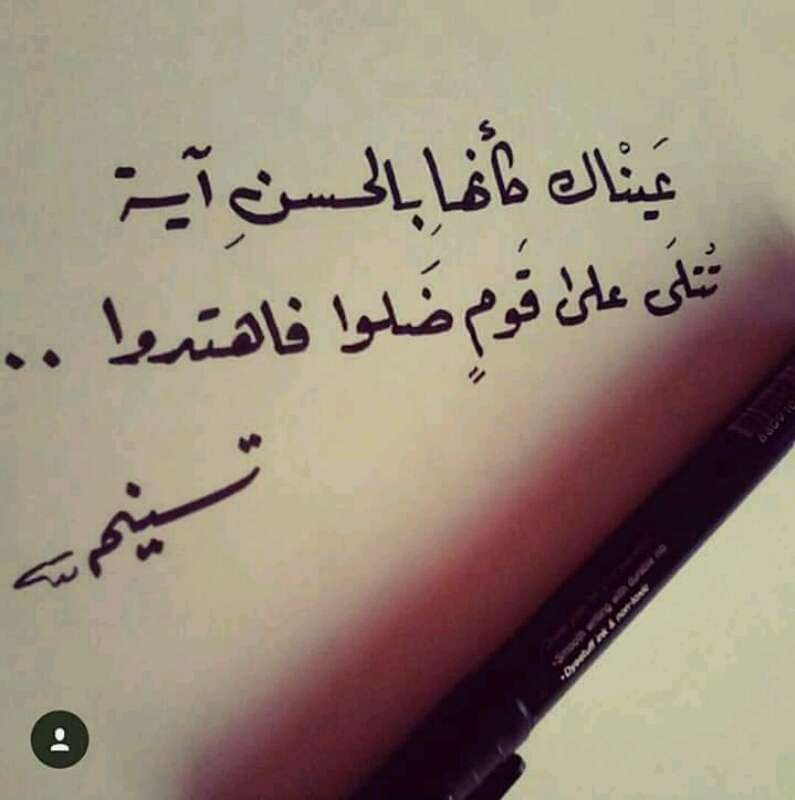 عَيْناك كأنها بِالحسنِ آية
تُتلَى على قَومٍ ضَلوا فاهتدوا ..
تسنيم
Smooth writing with durable nib
Dyestuff ink & non-toxic